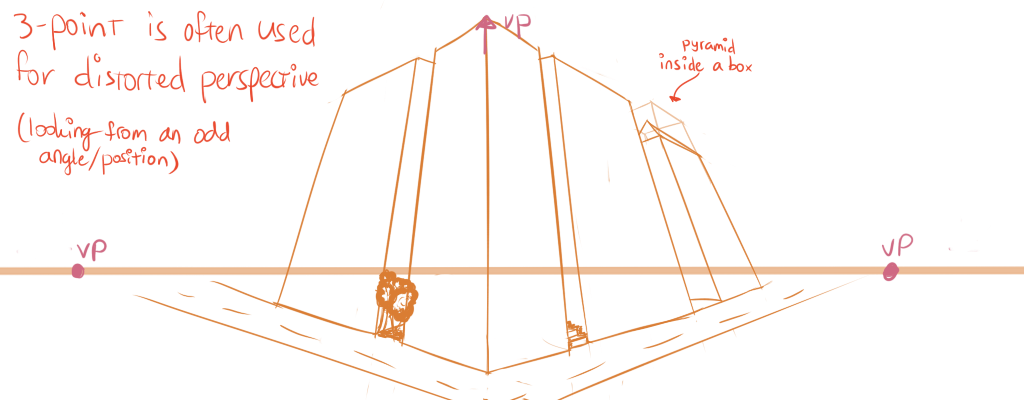 3-point is often used
for distorted perspective
(looking from an odd
angle/position)
VP
pyramid
inside a box
VP
VP